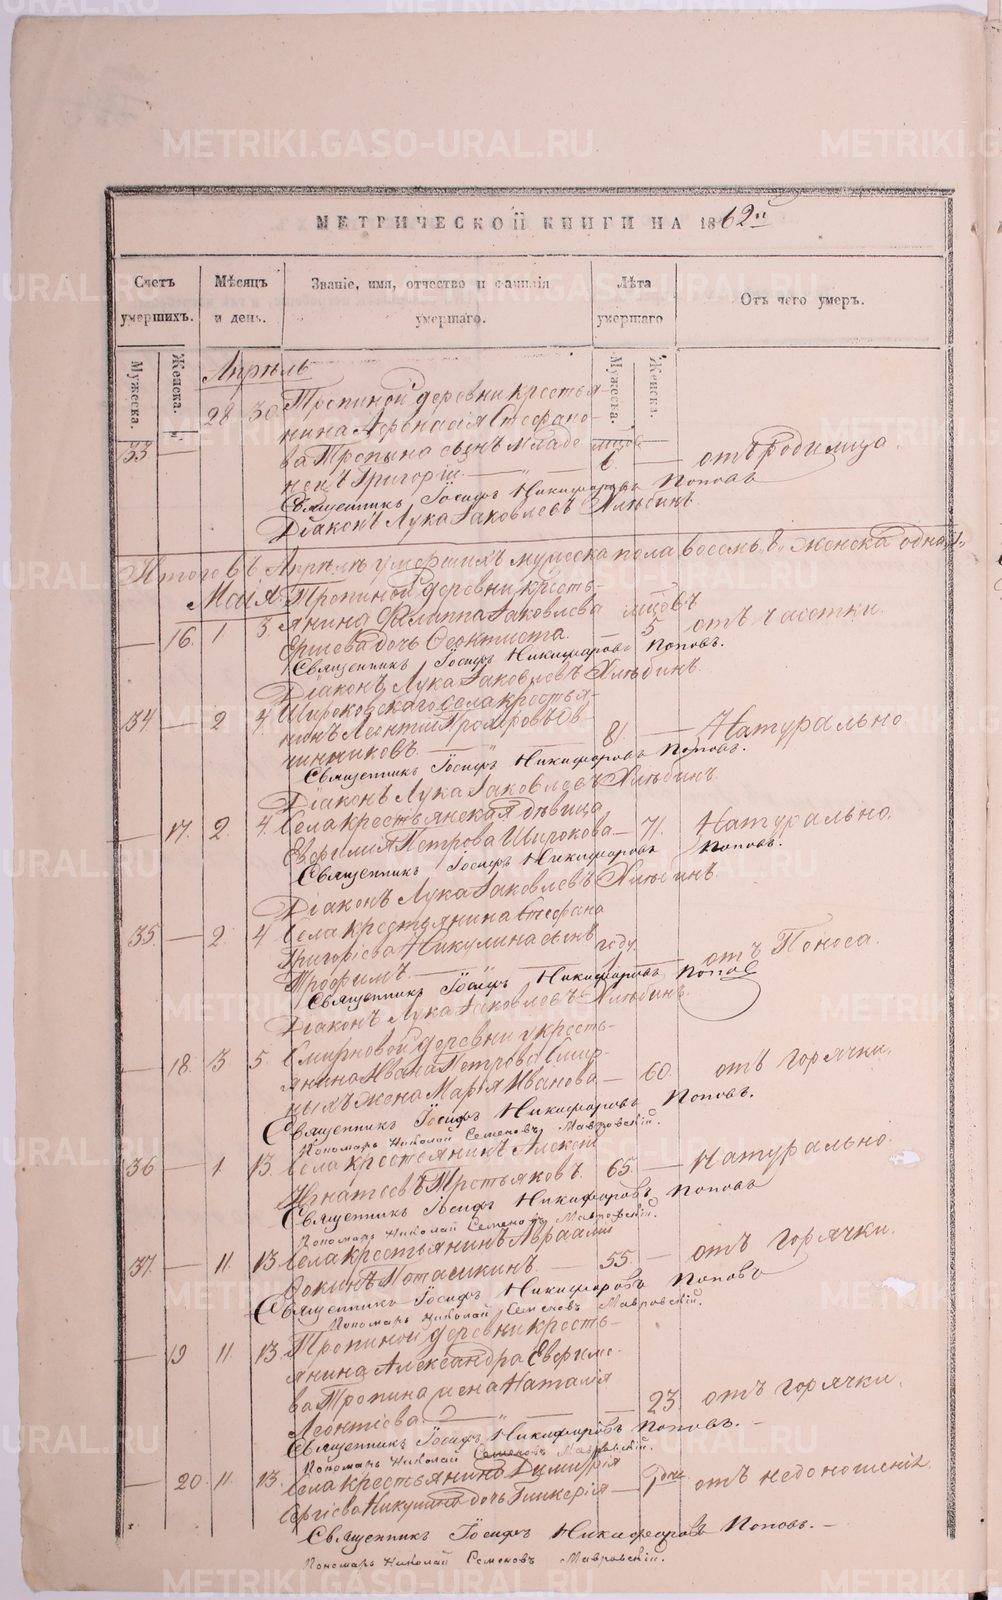 МЕТРИЧЕСКОЙ КНИГИ НА 1862й
Счетъ умершихъ.
Мѣсяцъ и день.
Званіе, имя, отчество и фамилія умершаго.
Лѣта умершаго
Отъ чего умеръ.
Мужеска.
Женска.
Мужеска.
Женска.
Апрѣль
28 30 Тропиной деревни крестья-
нина Аѳанасія Стефано-
33 — ва Тропина сынъ младе- мцовъ
нецъ Григорій — 6 — отъ родимца.
Священникъ Іосифъ Никифоровъ Поповъ
Діаконъ Лука Іаковлевъ Хлѣбинъ.
Итого въ Апрѣлѣ умершихъ мужеска пола восемь, 8, женска одна, 1,
Маія. Тропиной деревни кресть-
янина Филиппа Іаковлева мцовъ
— 16. 1 3. Ершева дочь Ѳеоктиста. — 5 отъ чахотки.
Священникъ Іосифъ Никифоровъ Поповъ.
Діаконъ Лука Іаковлевъ Хлѣбинъ.
34 — 2 4. Широковскаго села крестья-
нинъ Леонтій Прохоровъ Ов-
чинниковъ. — 81. — Натурально
Священникъ Іосифъ Никифоровъ Поповъ.
Діаконъ Лука Іаковлевъ Хлѣбинъ.
— 17. 2. 4. Села крестьянская дѣвица
Евфимія Петрова Широкова — 71. Натурально.
Священникъ Іосифъ Никифоровъ Поповъ.
Діаконъ Лука Іаковлевъ Хлѣбинъ.
35. — 2. 4 Села крестьянина Стефана
Григоріева Никулина сынъ году
Трофимъ. — 1 — отъ Поноса.
Священникъ Іосифъ Никифоровъ Поповъ
Діаконъ Лука Іаковлевъ Хлѣбинъ.
— 18. 3. 5. Смирновой деревни кресть-
янина Ивана Петрова Смир-
ныхъ жена Марія Иванова — 60. отъ горячки.
Священникъ Іосифъ Никифоровъ Поповъ.
Пономарь Николай Семеновъ Мавровскій.
36 — 1. 13. Села крестьянинъ Алексій
Игнатьевъ Третьяковъ. 65. — Натурально.
Священникъ Іосифъ Никифоровъ Поповъ
Пономарь Николай Семеновъ Мавровскій.
37. — 11. 13. Села крестьянинъ Авраамій
— 55. — отъ горячки.
Священникъ Іосифъ Никифоровъ Поповъ
Пономарь Николай Семеновъ Мавровскій.
— 19 11. 13. Тропиной деревни кресть-
янина Александра Евфимо-
ва Тропина жена Наталія
Леонтіева. — 23. отъ горячки.
Священникъ Іосифъ Никифоровъ Поповъ. —
Пономарь Николай Семеновъ Мавровскій.
— 20. 11. 13. Села крестьянина Димитрія
Сергіева Никулина дочь Гликерія — отъ недоношенія.
Священникъ Іосифъ Никифоровъ Поповъ. —
Пономарь Николай Семеновъ Мавровскій.
METRIKI.GASO-URAL.RU